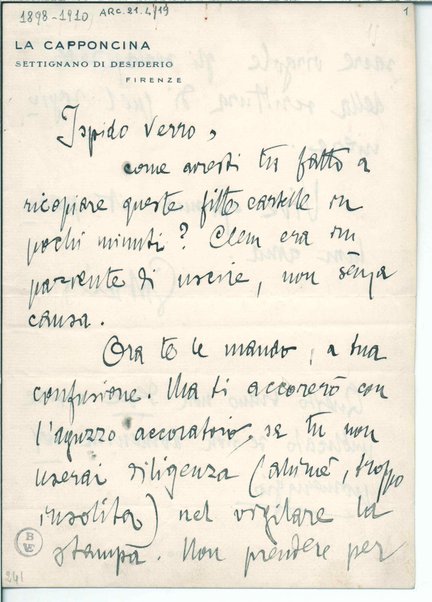 1898-1910) ARC.21.4/19 1
LA CAPPONCINA
SETTIGNANO DI DESIDERIO
FIRENZE
Ispido verro,
come avresti tu fatto a
ricopiare queste fitte cartelle in
pochi minuti? Clem era im
paziente di uscire, non senza
causa.
Ora te le mando, a tua
confusione. Ma ti accorerò con
l'aguzzo accoratoio, se tu non
userai diligenza (ahimè, troppo
insolita) nel vigilare la
stampa. Non prendere per
241